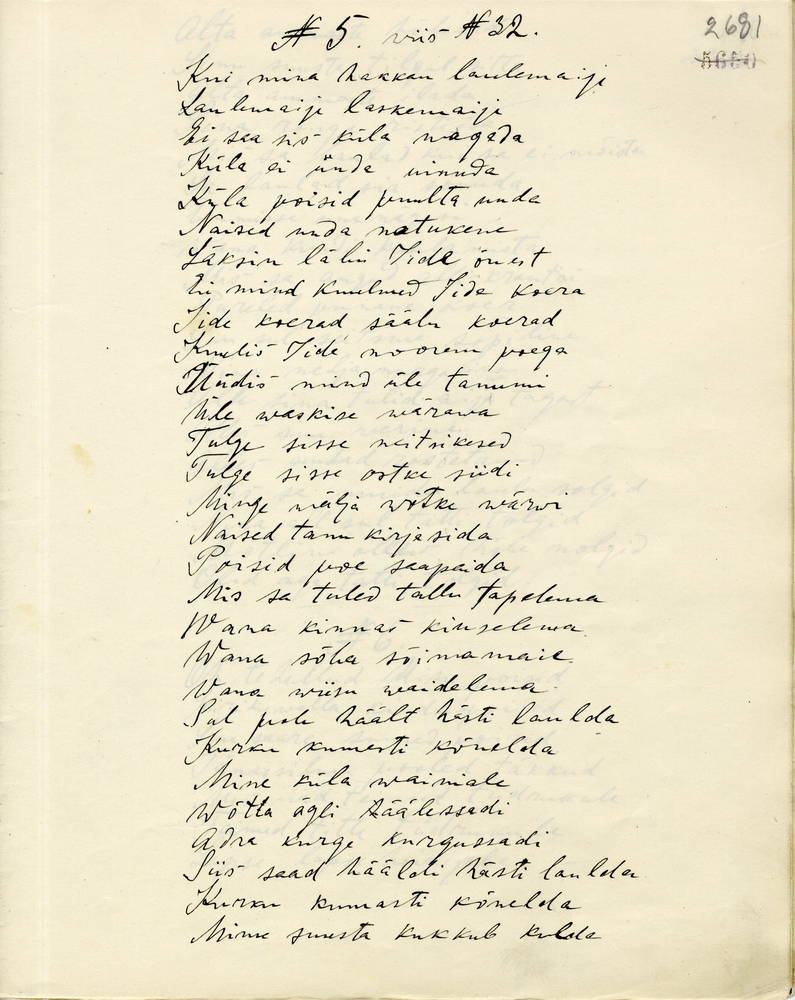 2681
5650
№ 5. viis № 32.
Kui mina hakkan laulemaije
Laulemaije laskemaije
Ei saa siis küla magada
Küla ei unda uinuda
Küla poisid puulta unda
Naised unda natukene
Läksin läbi Iide õuest
Ei mind kuulnud Iide koera
Iide koerad säälu koerad
Kuulis Iide noorem poega
Üüdis mind üle tanumi
Üle waskise wärawa
Tulge sisse neitsikesed
Tulge sisse ostke siidi
Minge wälja wõtke wärwi
Naised tanu kirjasida
Poisid poe saapaida
Mis sa tuled tallu tapelema
Wana kinnas kiuselema
Wana sõba sõimamaie
Wana wiisu waidelema
Sul pole häält hästi laulda
Kurku kumesti kõnelda
Mine küla wainiale
Wõtta ägli häälessadi
Adra kurge kurgussadi
Siis saad hääldi hästi laulda
Kurku kumasti kõnelda
Minu suusta kukkub kulda